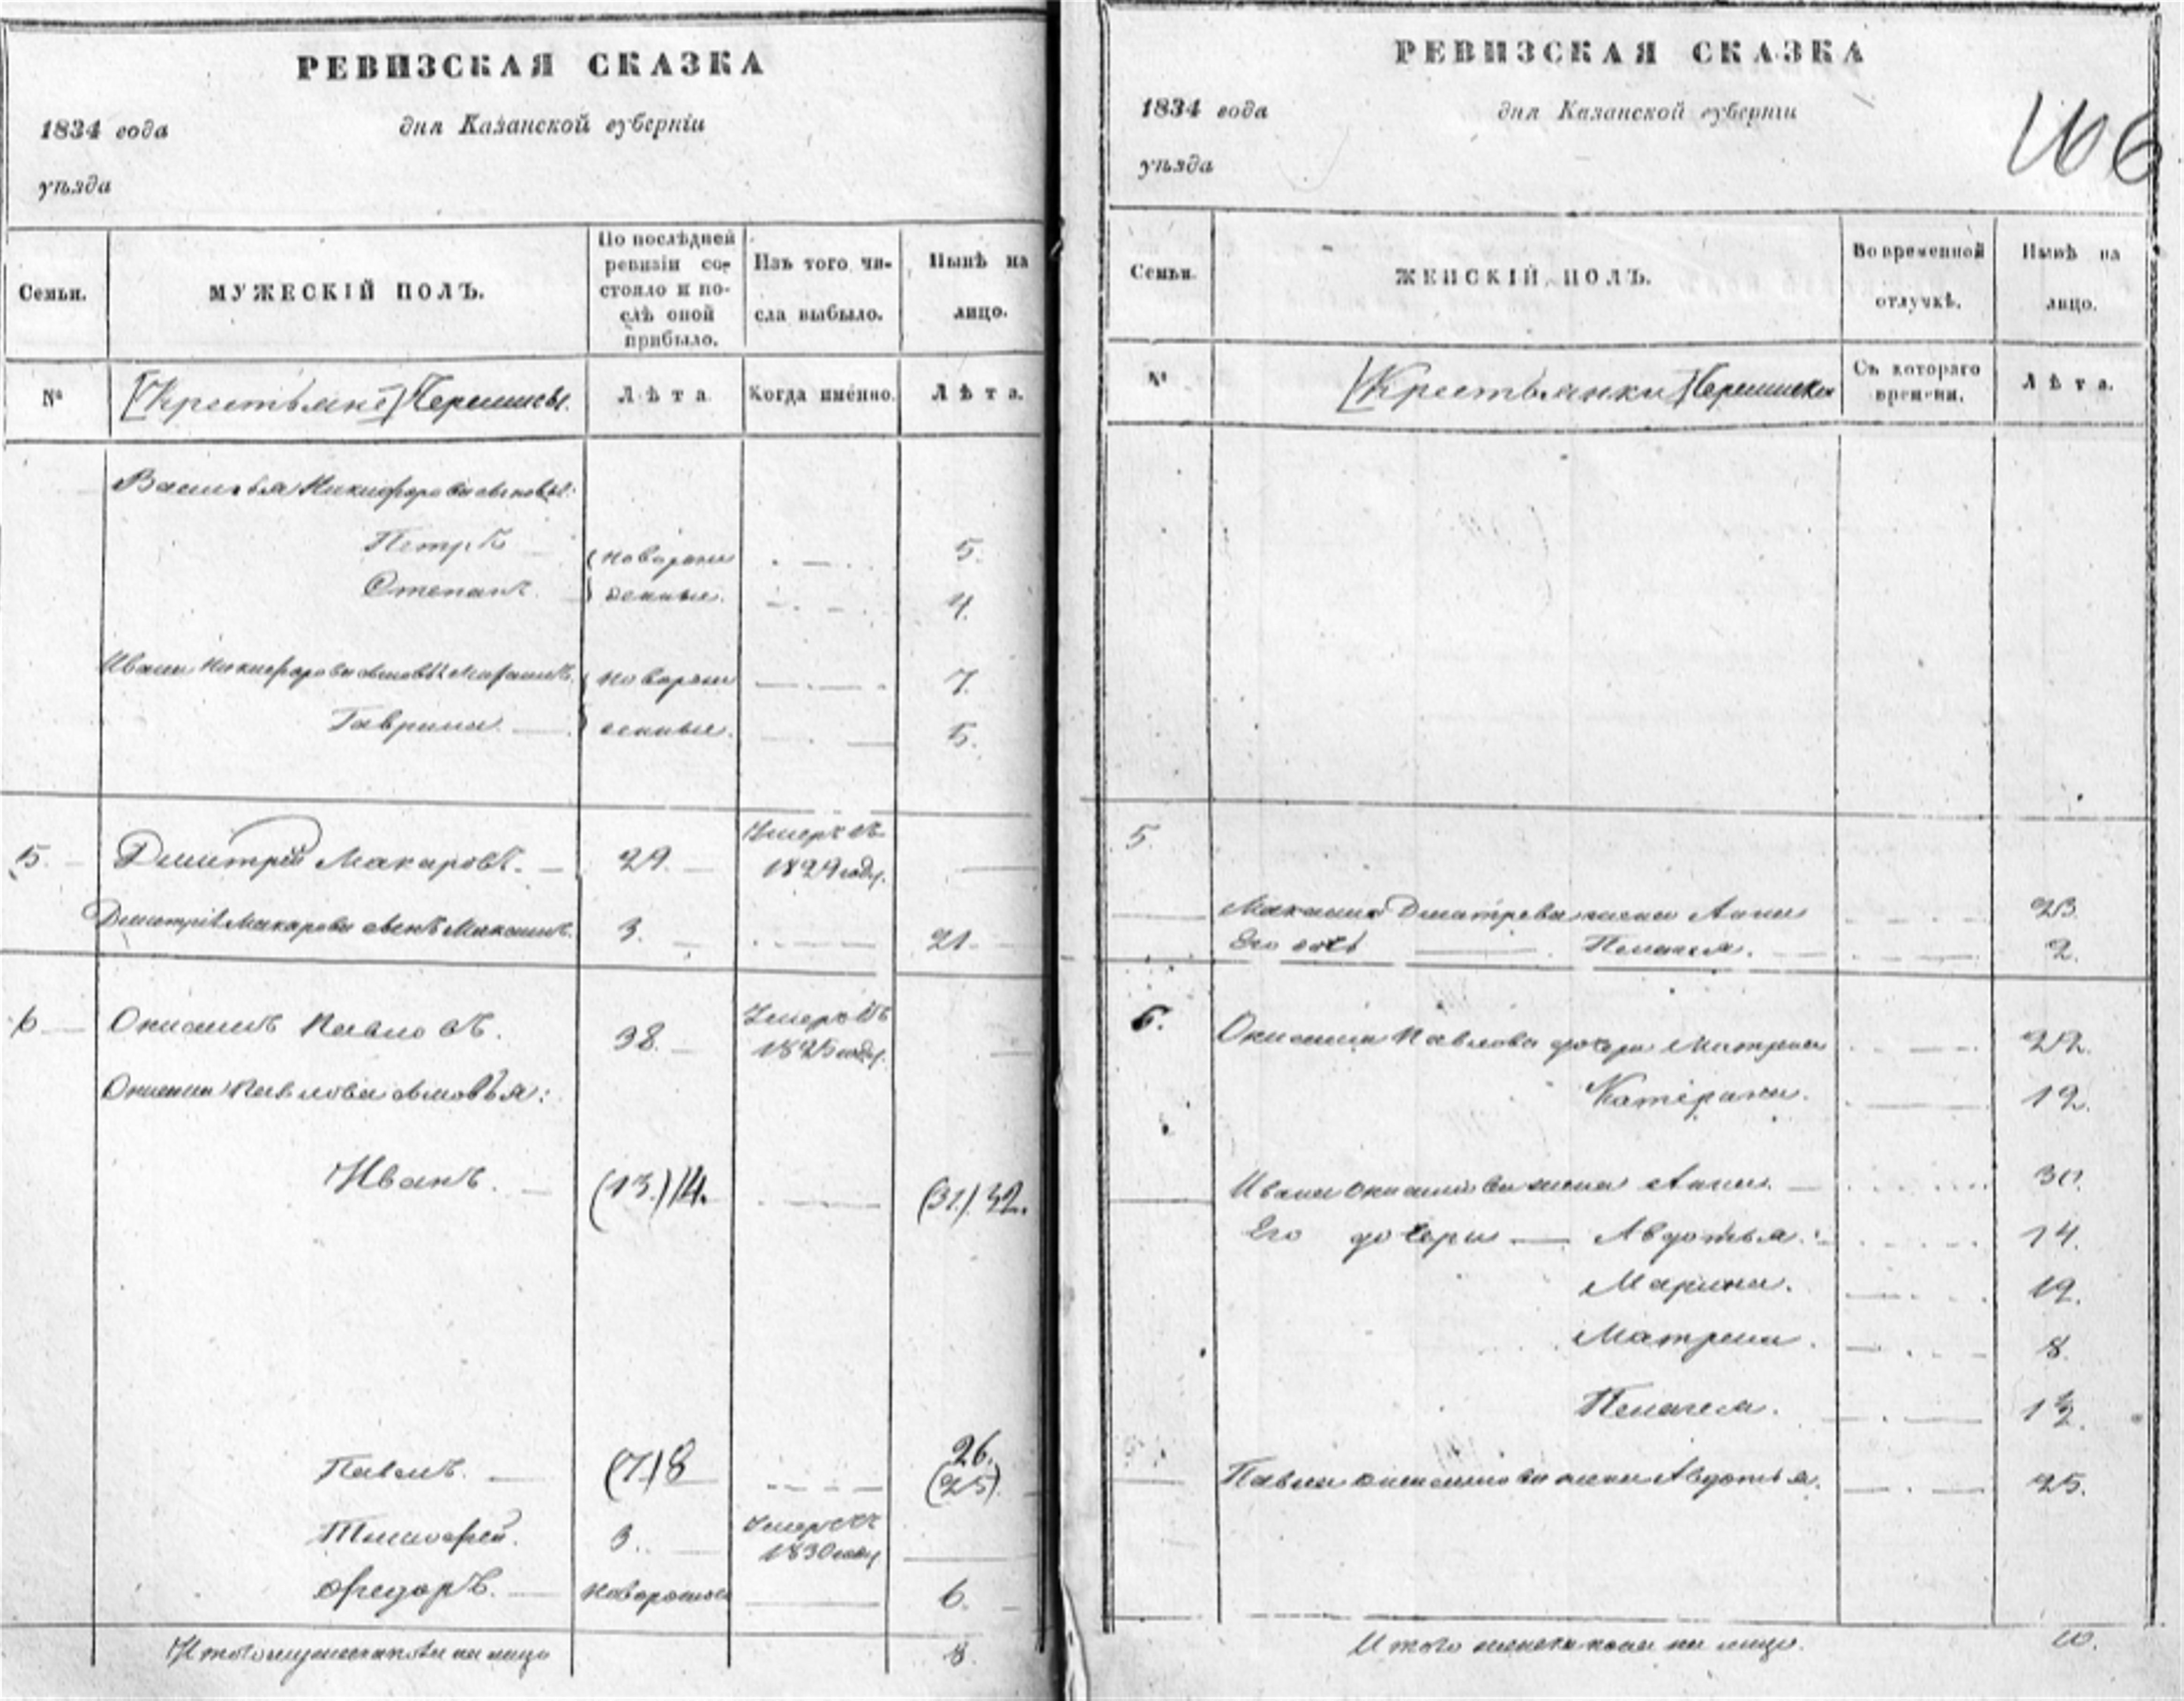 РЕВИЗСКАЯ СКАЗКА
1834 года
дня Казанской губерніи
уѣзда
Семьи.
МУЖЕСКІЙ ПОЛЪ.
По послѣдней
ревизіи со-
стояло и по-
слѣ оной
прибыло.
Изъ того чи-
сла выбыло.
Нынѣ на
лицо.
№
[Крестьяне] Черемисы.
Лѣта.
Когда именно.
Лѣта.
Василья Никифорова сыновья:
Петръ 5.
Степанъ. 4.
новорож
денные.
Ивана Никифорова сыновья
новорож 7.
Гаврила. денные. 5.
5. Дмитрій Макаровъ. 29. Умеръ въ
1829 году.
Дмитрія Макарова сынъ Максимъ. 3. 21
6 Павловъ. 38. Умеръ въ
1825 году.
Павлова сыновья:
Иванъ. (13.) 14. (31.) 32.
Павелъ. (7) 8 26. (25).
Тимофей. 3. Умеръ въ
1830 году
Федоръ. новорожден 6.
Итого мужеска пола на лицо 8.
РЕВИЗСКАЯ СКАЗКА
1834 года
дня Казанской губерніи
106
уѣзда
Семьи.
ЖЕНСКІЙ ПОЛЪ.
Во временной
отлучкѣ.
Нынѣ на
лицо.
№
[Крестьянки] Черемиски
Съ котораго
времени.
Лѣта.
5.
Максима Дмитрева жена Анна 23.
Его дочь Пелагея. 2.
6. Павлова дочери 22.
Катерина. 12.
Ивана жена Анна. 30.
Его дочери — Авдотья. 14.
Марина. 12.
Матрена. 8.
Пелагея. 1½.
Павла жена Авдотья. 25.
Итого женска пола на лицо. 10.